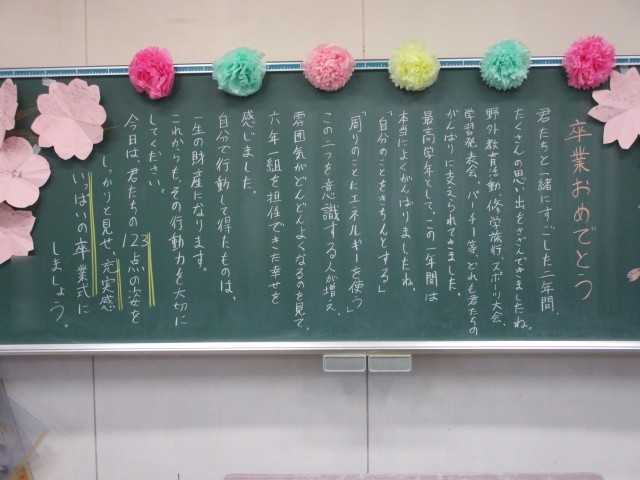 卒業おめでとう
君たちと一緒にすごした二年間、
たくさんの思い出をきざんできましたね。
野外教育活動、修学旅行、スポーツ大会、
学習発表会、パーティー等、どれも君たちの
がんばりに支えられてきました。
最高学年として、この一年間は
本当によくがんばりましたね。
「自分のことをきちんとする」
「周りのことにエネルギーを使う」
この二つを意識する人が増え、
雰囲気がどんどんよくなるのを見て、
六年一組を担任できた幸せを
感じました。
自分で行動して得たものは、
一生の財産になります。
これからも、その行動力を大切に
してください。
今日は、君たちの123点の姿を
しっかりと見せ、充実感
いっぱいの卒業式に
しましょう。